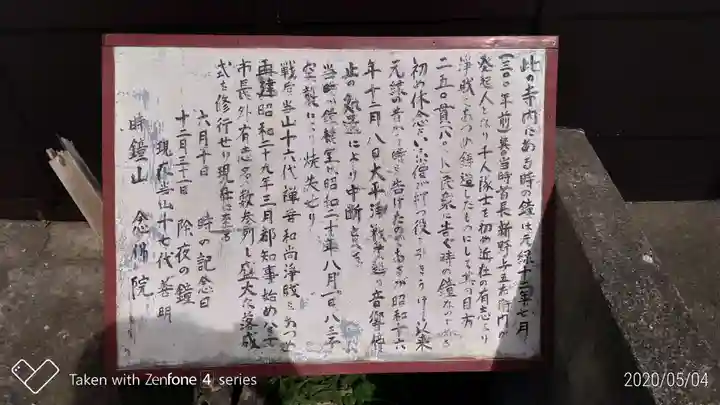 此の寺内にある時の鐘は元禄十二年七月
(三〇〇年前)其の当時首長新野与五右衛門が
発起人となり千人隊士を初め近在の有志より
浄戝をあつめ鋳造したものにして其の目方
二五〇貫八〇〇 民衆に告ぐ時の鐘なので
初め休念 僧が打つ役を引きうけし以来
元禄の昔から時を告げたので あるが昭和十六
年十二月八日太平洋戦争 の音響停
止の により中断
当時の鐘楼堂は昭和二十年八月一日八王子
空襲により焼失せり
戦后当山十六代禅誉和尚浄戝をあつめ
再建昭和二十九年三月都知事始め八王子
市長外有志多数参列し盛大な落成
式を修行せり現在に至る
六月十日 時の記念日
十二月三十一日 除夜の鐘
現在当山十七代善明
時鐘山 念佛院
Taken with Zenfone 4 series
2020/05/04